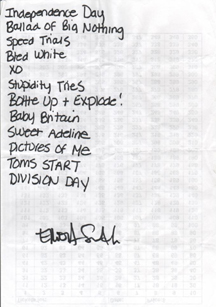 Independence Day
Ballad of Big Nothing
Speed Trials
Bled White
XO
Stupidity Tries
Bottle Up + Explode!
Baby Britain
Sweet Adeline
Pictures of Me
Toms START
DIVISION DAY
Elliott Smith